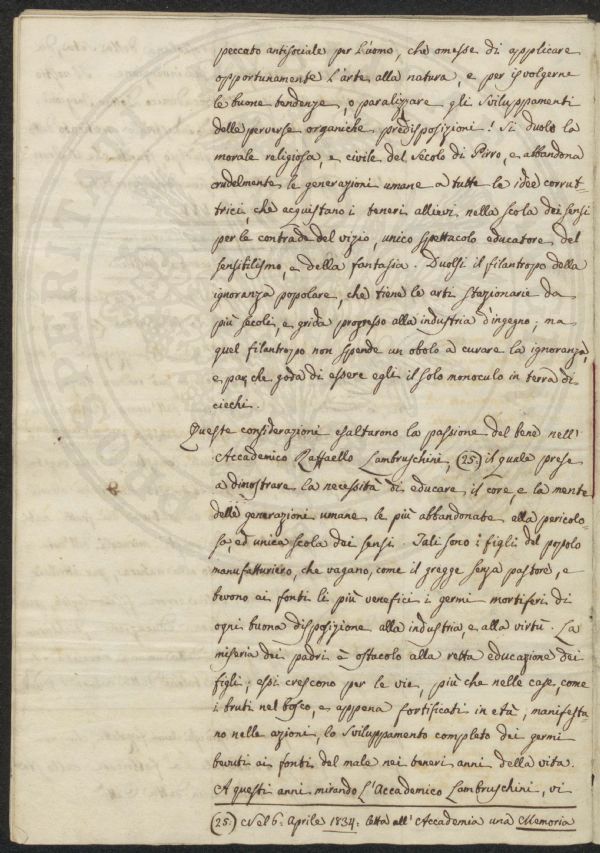 peccato antisociale per l'uomo, che omesse di applicare
opportunamente l'arte alla natura, e per isvolgerne
le buone tendenze, o paralizzare gli sviluppamenti
delle perverse organiche predisposizioni! Si duole la
morale religiosa, e civile del secolo di Pirro, e abbandona
crudelmente le generazioni umane a tutte le idee corrut=
trici, che acquistano i teneri allievi nella scola dei sensi
per le contrade del vizio, unico spettacolo educatore del
sensitilismo, e della fantasia. Duolsi il filantropo della
ignoranza popolare, che tiene le arti stazionarie da
più secoli, e grida progresso alla industria d'ingegno; ma
quel filantropo non spende un obolo a curare la ignoranza,
e par che goda di essere egli il solo monoculo in terra di
ciechi.
Queste considerazioni esaltarono la passione del bene nell'
Accademico Raffaello Lambruschini, (25.) il quale prese
a dimostrare la necessità di educare il core, e la mente
delle generazioni umane le più abbandonate alla pericolo=
sa, ed unica scola dei sensi. Tali sono i figli del popolo
manufatturiero, che vagano, come il gregge senza pastore, e
bevono ai fonti li più venefici i germi mortiferi di
ogni buona disposizione alla industria, e alla virtù. La
miseria dei padri è ostacolo alla retta educazione dei
figli; essi crescono per le vie, più che nelle case, come
i bruti nel bosco, e appena fortificati in età, manifesta=
no nelle azioni, lo sviluppamento completo dei germi
bevuti ai fonti del male nei teneri anni della vita.
A questi anni mirando l'Accademico Lambruschini, vi
(25.) Nel 6. Aprile 1834. letta all'Accademia una Memoria